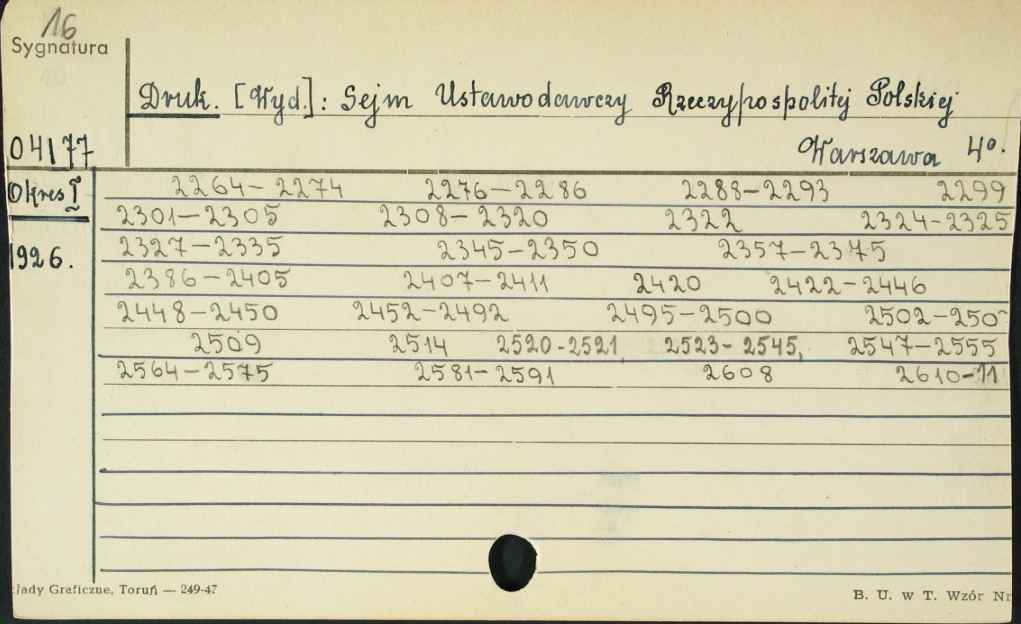 16
Sygnatura
Druk. [Wyd.]: Sejm Ustawodawczy Rzeczypospolitej Polskiej
04177
Warszawa 4º.
Okres I 2264-2274 2276-2286 2288-2293 2299
2301-2305 2308-2320 2322 2324-2325
1926. 2327-2335 2345-2350 2357-2375
2386-2405 2407-2411 2420 2422-2446
2448-2450 2452-2492 2495-2500 2502-250
2509 2514 2520-2521, 2523-2545, 2547-2555
2564-2575 2581-2591 2608 2610-11
łady Graficzne, Toruń — 249-47
B. U. w T. Wzór Nr